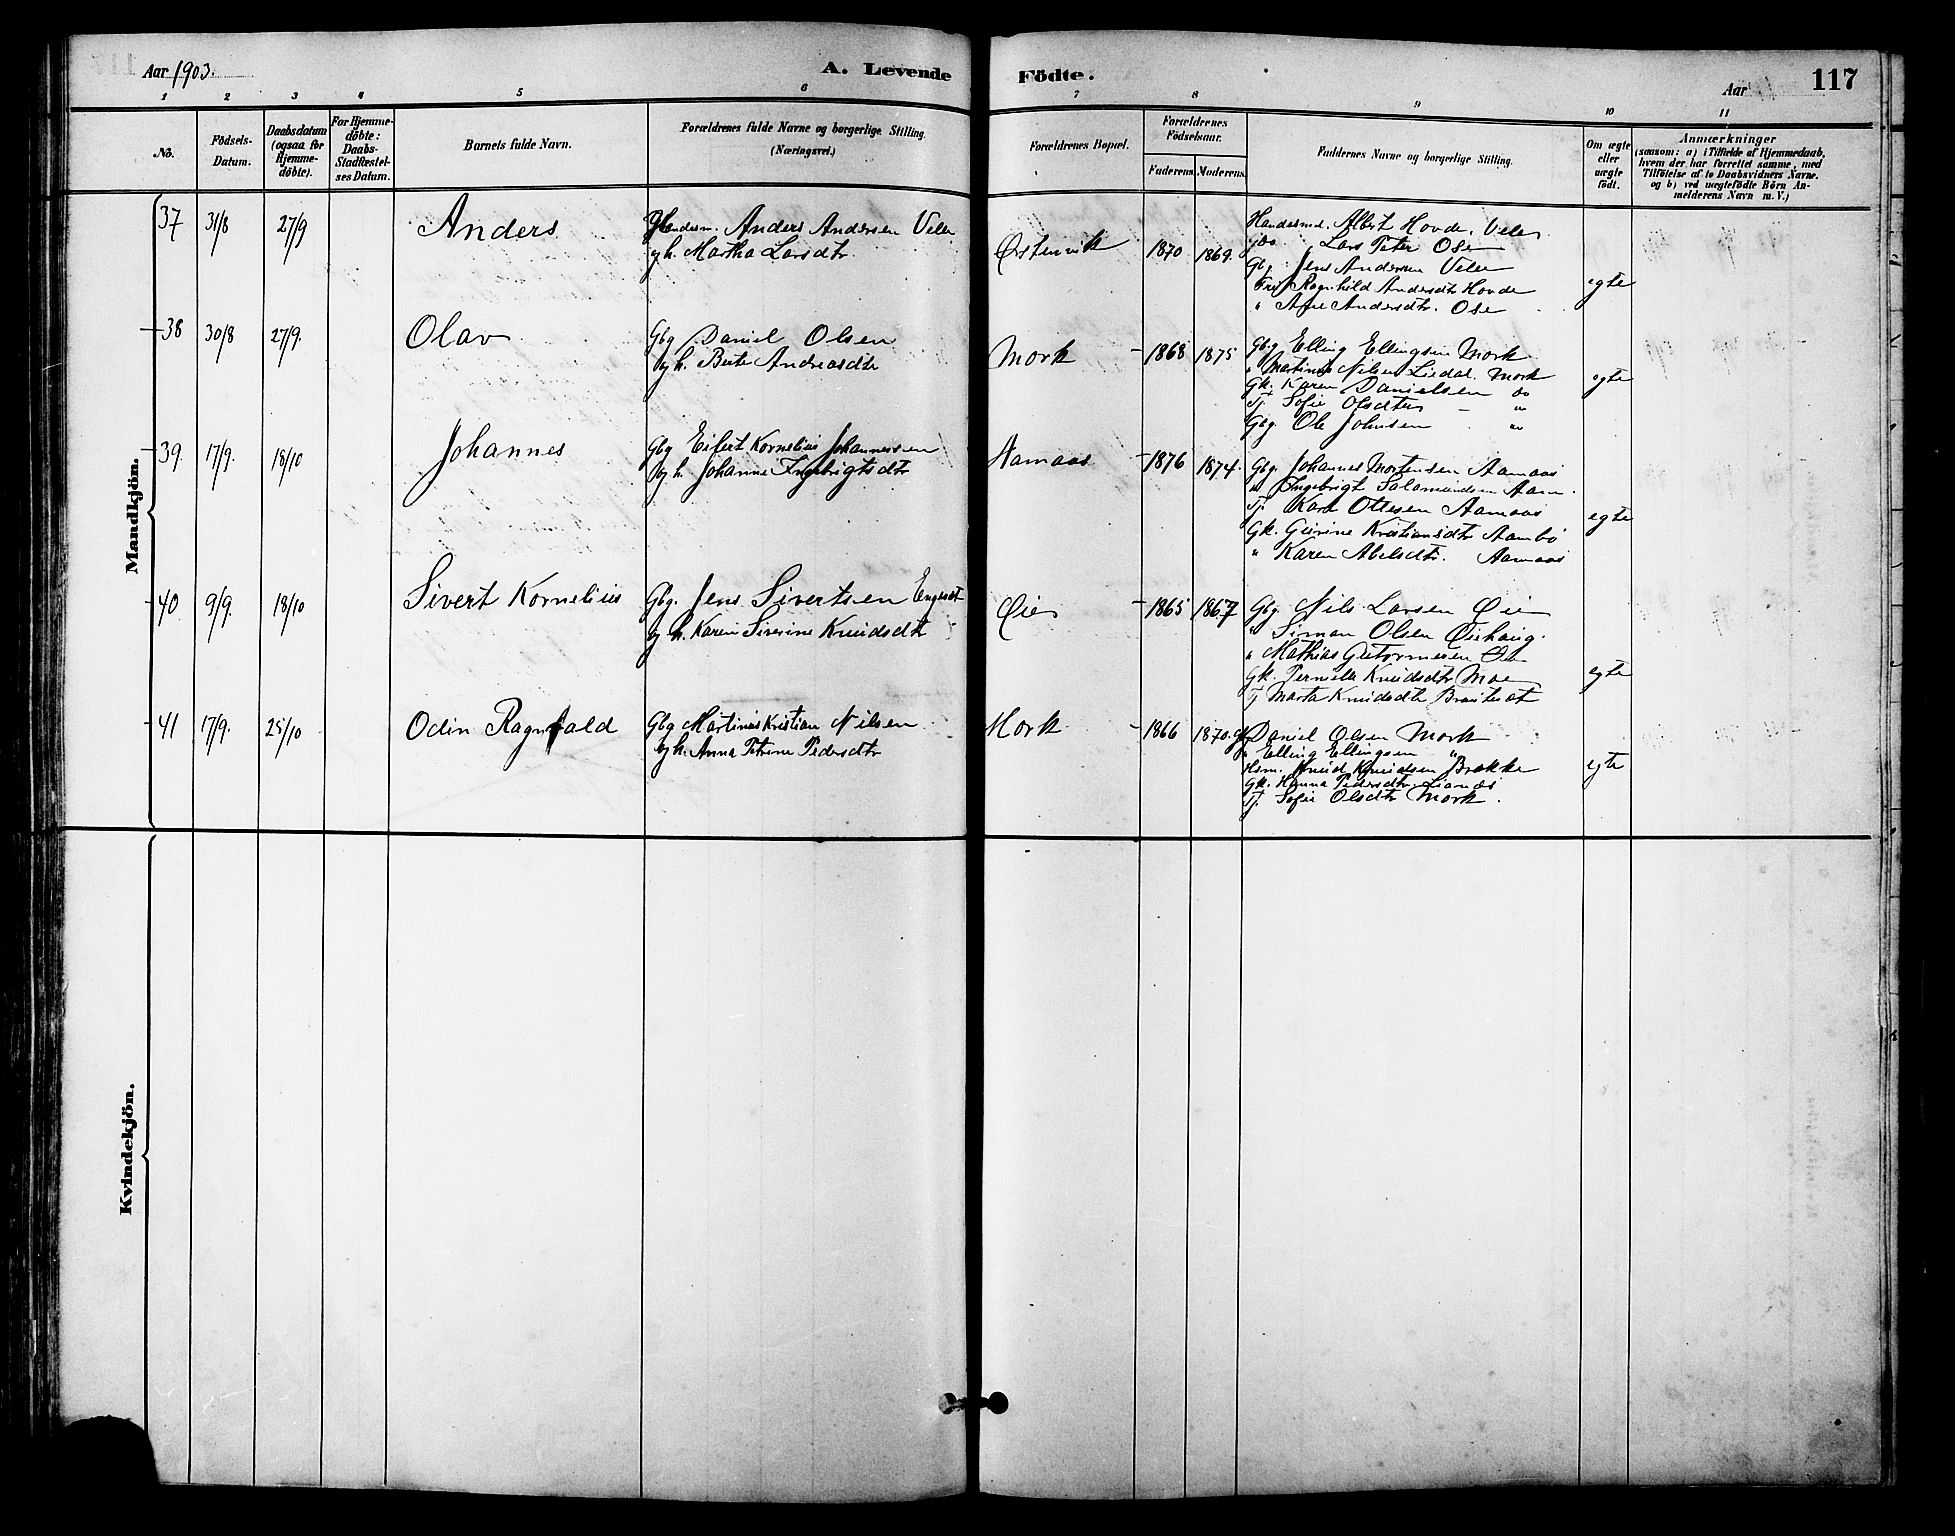 Aar 1903.
A. Levende
Födte.
Aar
117
1 2 3 4 5 6 7 8 9 10 11
No.
Födsels-Datum.
Daabsdatum (ogsaa for Hjemme-döbte).
For Hjemme-döbte: Daabs-Stadfæstel-ses Datum.
Barnets fulde Navn.
Forældrenes fulde Navne og borgerlige Stilling. (Næringsvei.)
Forældrenes Bopæl.
Forældrenes Födselsaar.
Faderens
Moderens
Faddernes Navne og borgerlige Stilling.
Om ægte eller uægte födt.
Anmærkninger
(saasom: a) i Tilfælde af Hjemmedaab,
hvem der har forrettet samme, med
Tilföielse af to Daabsvidners Navne.
og b) ved uægtefödte Börn An-
melderens Navn m. V.)
Mandkjön.
37 31/8 27/9 Anders
Anders Andersen Velle
og h. Martha Larsdtr.
Ørstenvik 1870 1869.
Albert Hovde, Velle
do Lars Peter Ose
Gbg. Jens Andersen Velle
Ragnhild Andersdtr Hovde
" Andersdtr. Ose
egte
38 30/8 27/9. Olav
Gbg Daniel Olsen
og h. Berte Andreasdtr
Mork 1868 1875
Gbg Elling Ellingsen Mork
" Martinus Nilsen Mork
Gk. Karen Danielsen do
Tj. Sofie Olsdtr - "
Gbg. Ole Johnsen "
egte
39. 17/9. 18/10 Johannes
Gbg Eilert Kornelius Johannessen
og h. Johanne Ingebrigtsdtr
Aamaas 1876 1874.
Gbg. Johannes Mortensen Aamaas
" Ingebrigt Salamundsen Aam.
Tj. Karl Ottesen Aamaas
Gk. Gurine Kristiansdtr Aambö
" Karen Abelsdtr. Aamaas
egte
40. 9/9. 18/10 Sivert Kornelius
Gbg. Jens Sivertsen Engeset
og h. Karen Siverine Knudsdtr
Øie 1865 1867
Gbg Nils Larsen Øie
" Simon Olsen Øiehaug.
" Mathias Guttormsen
Gk. Pernille Knudsdtr Moe
Tj Marta Knudsdtr
egte
41 17/9. 25/10 Odin Ragnvald
Gbg Martinus Kristian Nilsen
og h. Anna Petrine Pedersdtr
Mork 1866 1870.
Gbg Daniel Olsen Mork
" Elling Ellingsen "
Hsm. Knud Knudsen Brække
Gk. Hanna Pedersdtr.
Tj. Sofie Olsdtr Mork.
egte
Kvindekjön.